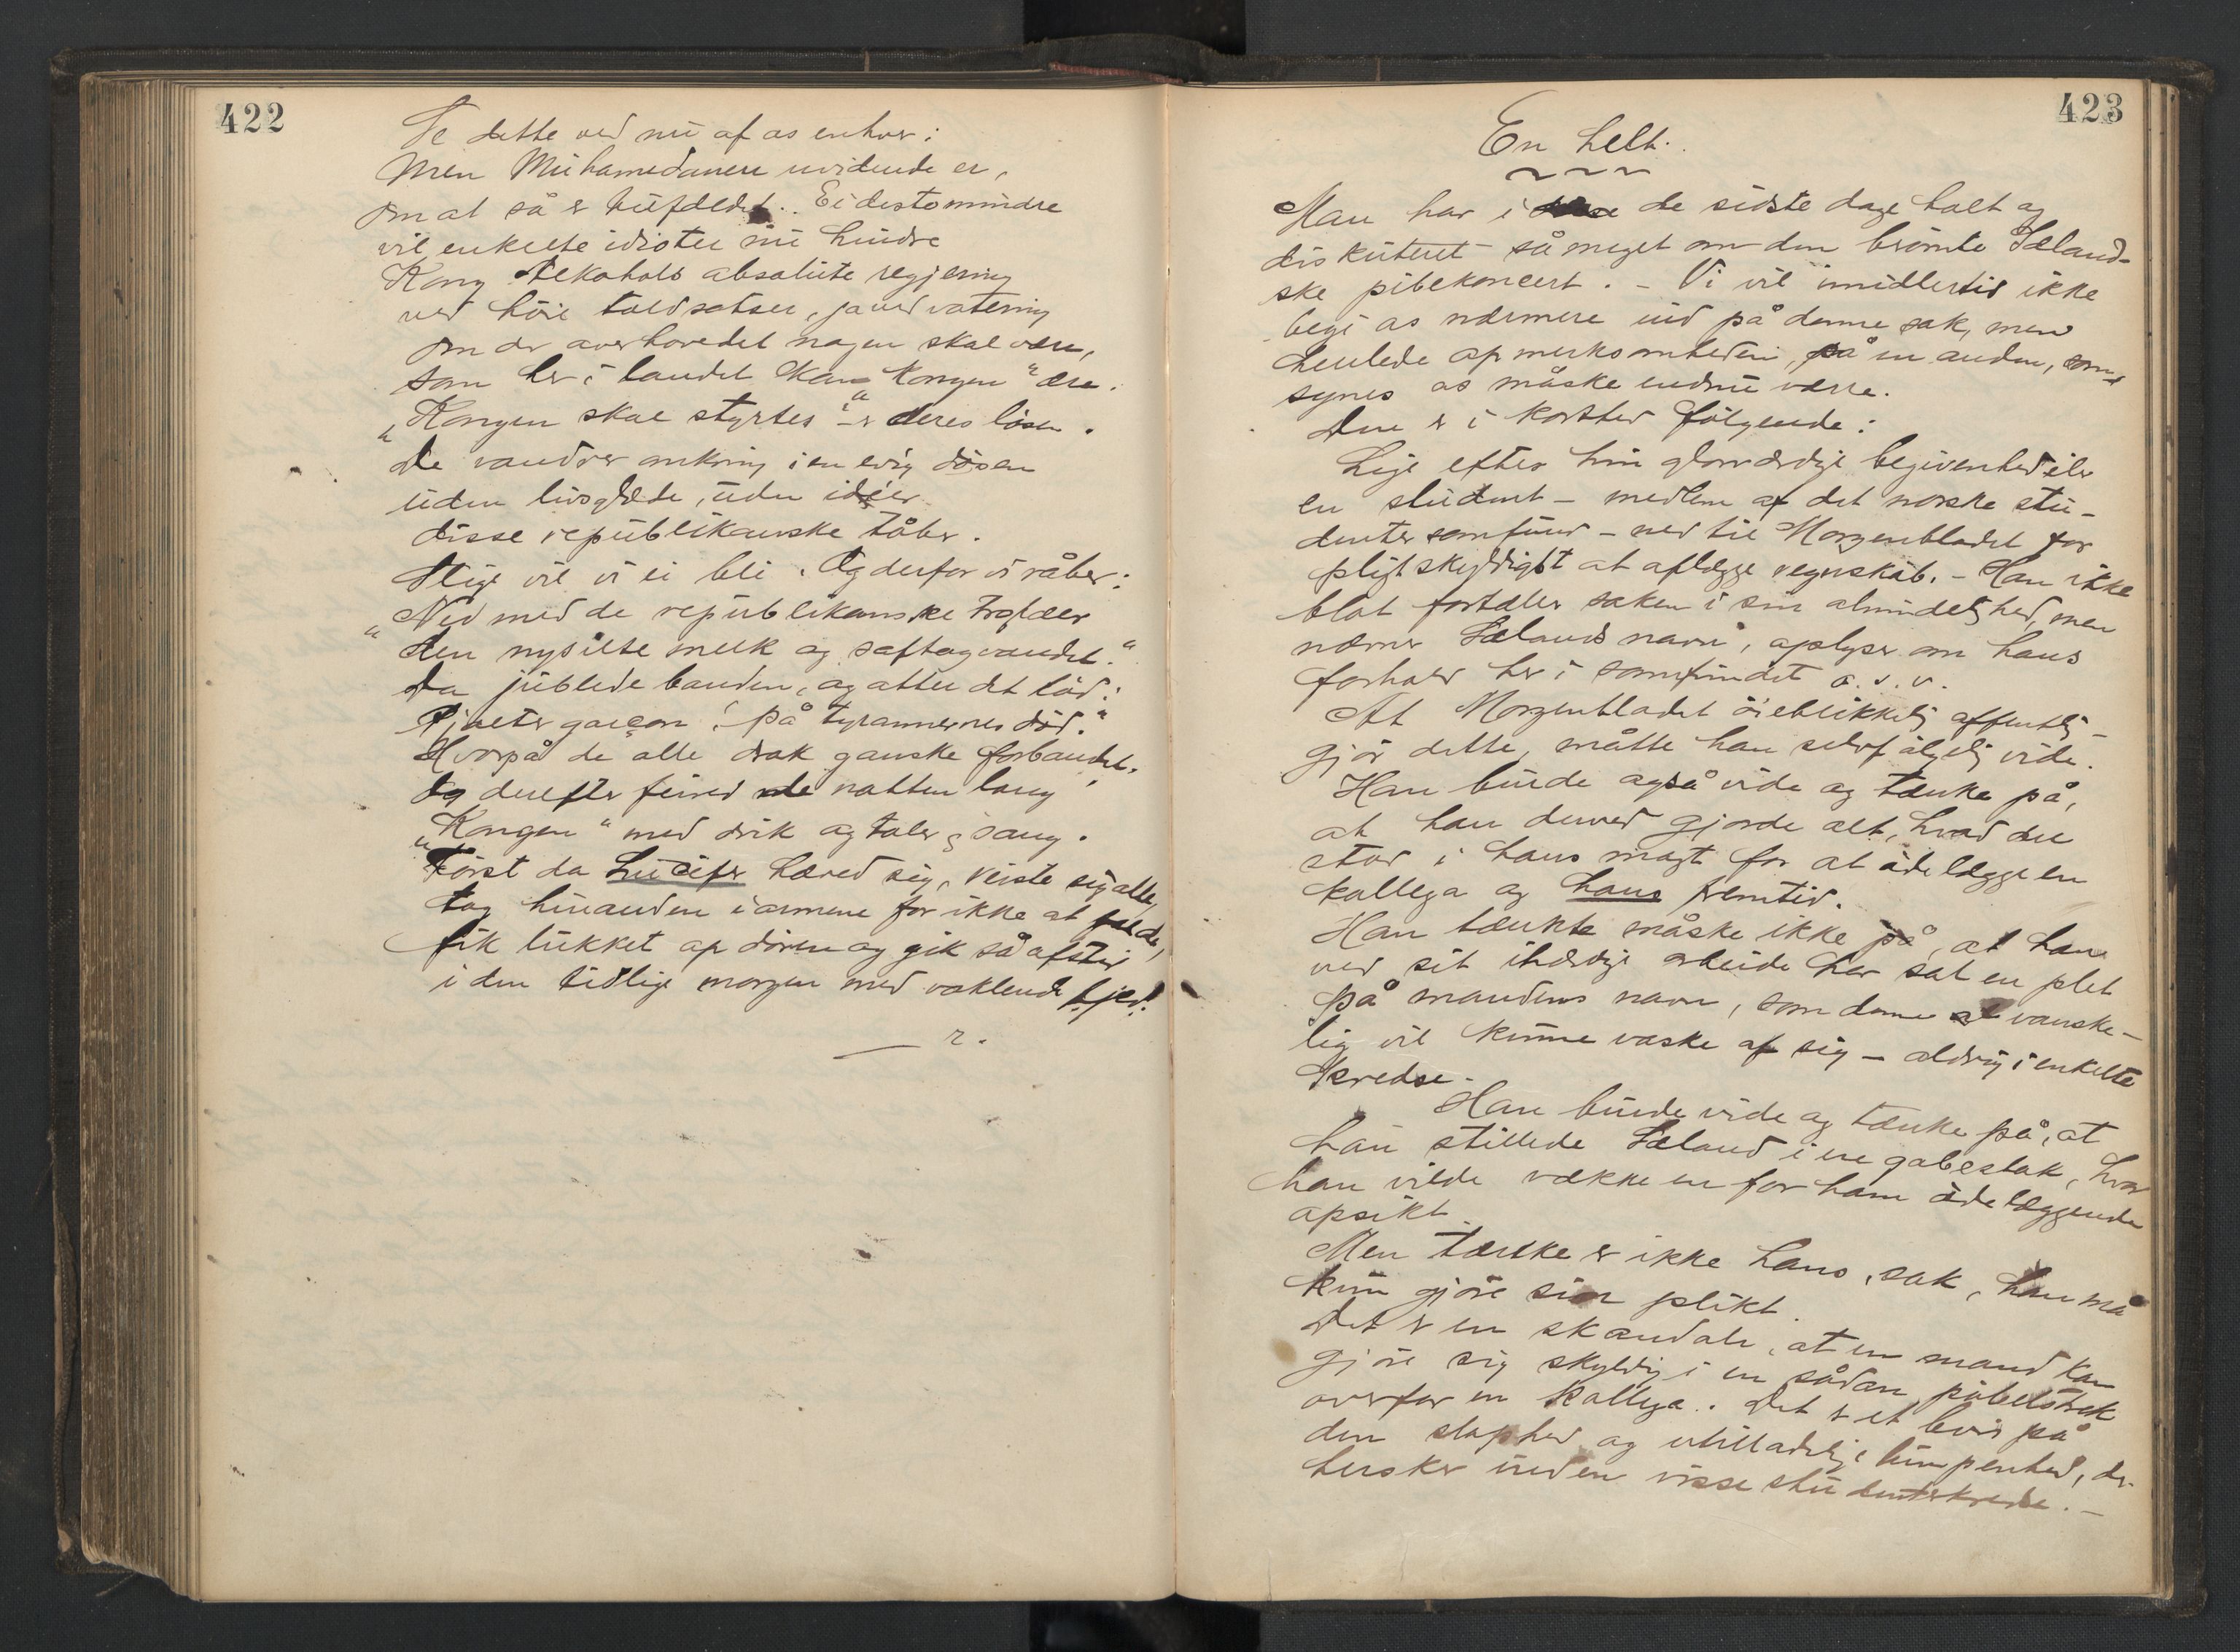 422
Se dette ved nu af os enhver:
Men Muhamedanere uvidende er,
om at så er tilfældet. Ei destomindre
vil enkelte idioter nu hindre
Kong Alkohols absolute regjering
ved höie toldsatser, ja ved votering
om der overhovedet nogen skal være,
som her i landet kan "Kongen" ære.
"Kongen skal styrtes" - er deres lösen.
De vandrer omkring i en evig dösen
uden livsglæde, uden idéer
disse republikanske tåber.
Slige vil vi ei bli. Og derfor vi råber:
"Ned med de republikanske trofæer
den nysilte melk og saftogvandet."
Da jublede banden, og atter det löd:
Pjolter garçon! på tyrannernes död."
Hvorpå de alle drak ganske forbandet.
Og derefter feired de natten lang
"Kongen" med drik og taler og sang.
Först da Lucifer hæved sig, reiste sig alle,
tog hinanden i armene for ikke at falde,
fik lukket op dören og gik så afsted
i den tidlige morgen med vaklende fjed.
r.
423
En helt.
Man har i de sidste dage talt og
diskuteret så meget om den berömte Sæland-
ske pibekoncert. - Vi vil imidlertid ikke
begi os nærmere ind på denne sak, men
henlede opmerksomheden på en anden, som
synes os måske endnu værre.
Den er i korthed fölgende:
Lige efter hin glorværdige begivenhed iler
en student - medlem af det norske stu-
dentersamfund - ned til Morgenbladet for
pligtskyldigst at aflægge regnskab. - Han ikke
blot fortæller saken i sin almindelighed, men
nævner Sælands navn, oplyser om hans
forhold her i samfundet o.s.v.
At Morgenbladet öieblikkelig offentlig-
gjör dette, måtte han selvfölgelig vide.
Han burde også vide og tænke på,
at han derved gjorde alt, hvad der
stod i hans magt for at ödelægge en
kollega og hans fremtid.
Han tænkte måske ikke på, at han
ved sit ihærdige arbeide har sat en plet
på mandens navn, som denne vanske-
lig vil kunne vaske af sig - aldrig i enkelte
kredse.
Han burde vide og tænke på, at
han stillede Sæland i en gabestok, hvor
han vilde vække en for ham ödelæggende
opsikt.
Men tænke er ikke hans sak, han må
kun gjöre sin plikt.
Det er en skandale, at en mand kan
gjöre sig skyldig i en sådan pöbelstrek
overfor en kollega. Det er et bevis på
den slaphed og utilladelige lumpenhed, der
hersker inden visse studenterkredse. -